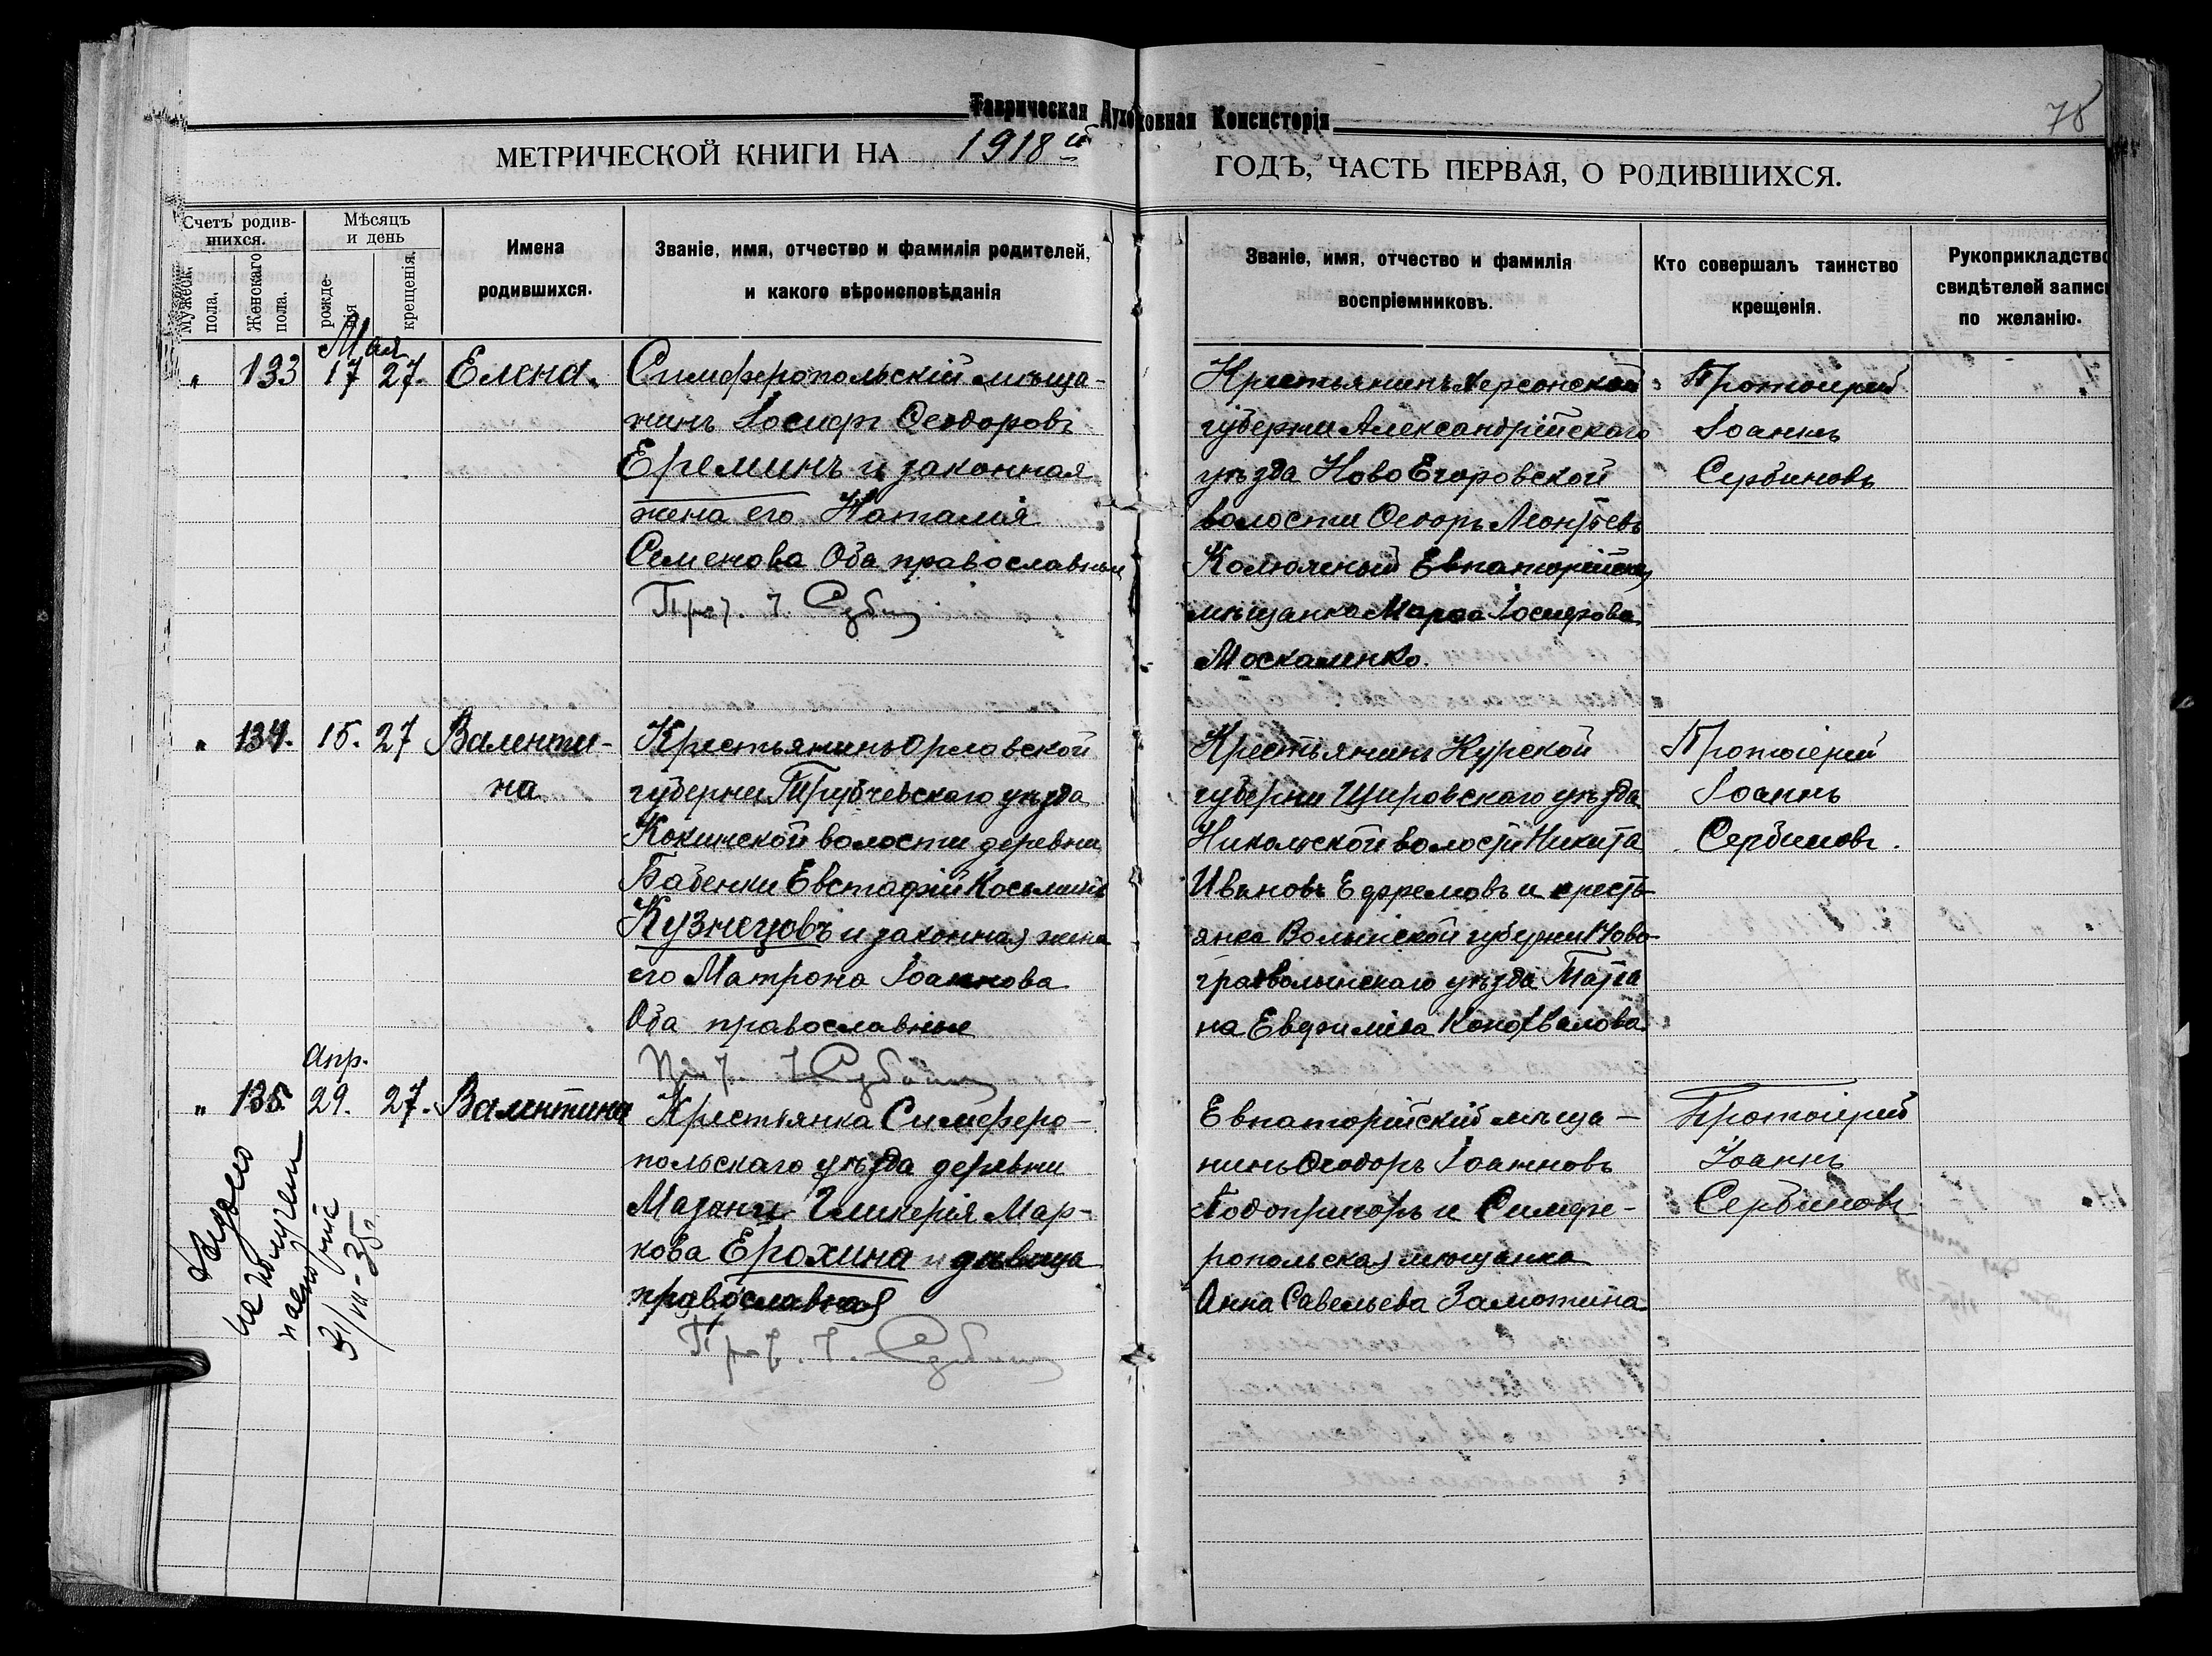 Таврическая Духовная Консисторія
78
МЕТРИЧЕСКОЙ КНИГИ НА 1918й ГОДЪ, ЧАСТЬ ПЕРВАЯ, О РОДИВШИХСЯ.
Счетъ родив-
шихся.
Мужеск. пола.
Женскаго пола.
Мѣсяцъ
и день
рожде-
нія
крещенія.
Имена
родившихся.
Званіе, имя, отчество и фамилія родителей,
и какого вѣроисповѣданія
Званіе, имя, отчество и фамилія
воспріемниковъ.
Кто совершалъ таинство
крещенія.
Рукоприкладство
свидѣтелей записи
по желанію.
Мая
" 133 17 27. Елена.
Симферопольскій мѣща-
нинъ Іосифъ Ѳеодоровъ
Ереминъ и законная
жена его Наталія
Семенова Оба православные
Прот. І.
Крестьянинъ Херсонской
губерніи Александрійскаго
уѣзда Ново Егоровской
волости Ѳеодоръ Леонтьевъ
Колючный Евпаторійская
мѣщанка Марѳа Іосифова
Москаленко.
Протоіерей
Іоаннъ
Сербиновъ
" 134. 15. 27 Валенти-
на
Крестьянинъ Орловской
губерніи Трубчевскаго уѣзда
Кокинской волости деревни
Бабенки Евстафій Косьминъ
Кузнецовъ и законная жена
его Матрона Іоаннова
Оба православные
Прот. І.
Крестьянинъ Курской
губерніи Щигровскаго уѣзда
Никольской волости Никита
Ивановъ Ефремовъ и кресть-
янка Волынской губерніи Ново-
градволынскаго уѣзда Татіа
на Евфиміева Коновалова
Протоіерей
Іоаннъ
Сербиновъ.
Апр.
" 135 29. 27. Валентина
Крестьянка Симферо-
польскаго уѣзда деревни
Мазанки Гликерія Мар-
кова Ерохина дѣвица
православная
Прот. І.
Евпаторійскій мѣща-
нинъ Ѳеодоръ Іоанновъ
Подопригоръ и Симфе-
ропольская мѣщанка
Анна Савельева Замотина
Протоіерей
Іоаннъ
Сербиновъ
Выдано
на получен
паспорта
31/VII-35.